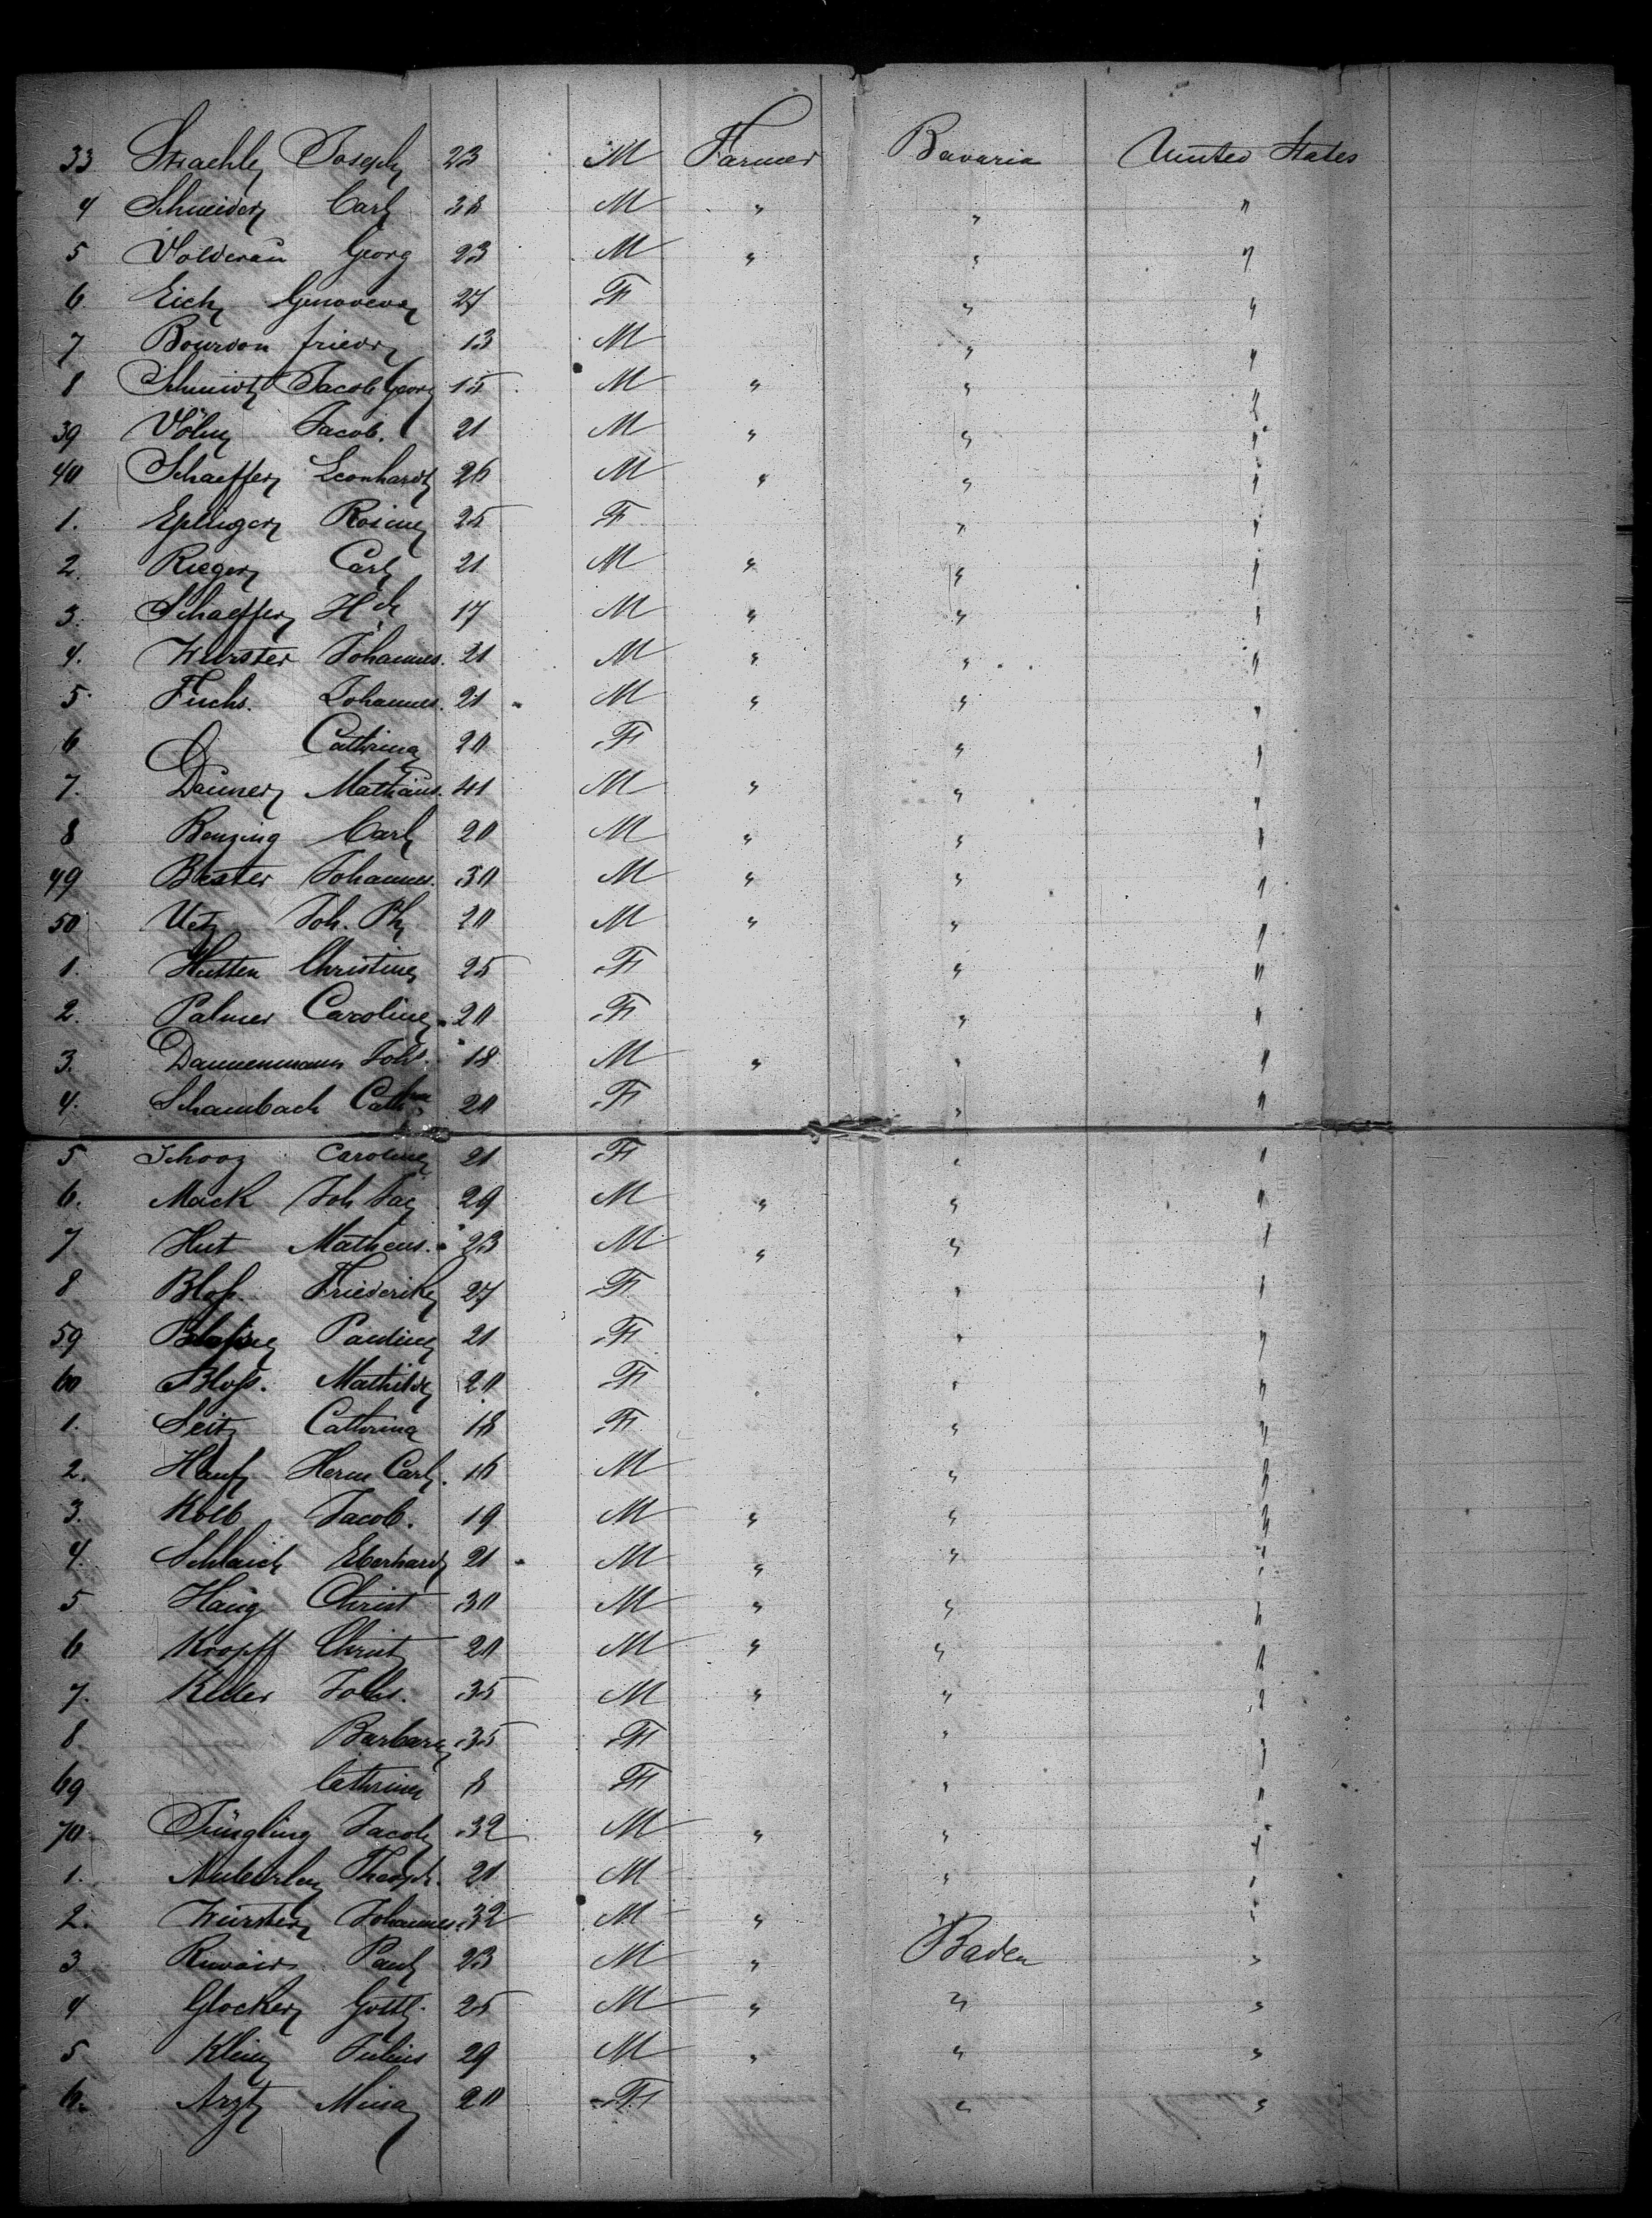 33 Straehle Joseph 23 M Farmer Bavaria United States
4 Schneider Carl 38 M " " "
5 Volderau Georg 23 M " " "
6 Eich Genoveva 27 F " "
7 Bourdon Friedr 13 M " "
8 Schmidt Jacob Georg 15 M " " "
39 Jacob. 21 M " " "
40 Schaeffer Leonhardt 26 M " " "
1. Eplinger Rosine 25 F " "
2. Rieger Carl 21 M " " "
3. Schaeffer Hch 17 M " " "
4. Wurster Johannes. 21 M " " "
5 Fuchs. Johannes. 21 M " " "
6 Cathrina 20 F " "
7. Dauner Mathäus. 41 M " " "
8 Benzing Carl 20 M " " "
49 Johannes. 30 M " " "
50 Utz Joh. Ph 20 M " " "
1. Hutten Christine 25 F " "
2. Palmer Caroline 20 F " "
3. Dannenmann Johs. 18 M " " "
4. Schambach Cathna 20 F " "
5 Caroline 21 F " "
6. Mack Joh Jac 29 M " " "
7 Hut Matheus. 23 M " " "
8 Bloß. Friederike 27 F " "
59 Pauline 21 F " "
60 Bloß. Mathilde 20 F " "
1. Seitz Cathrina 18 F " "
2. Hauf Herm Carl. 16 M " "
3. Kolb Jacob. 19 M " " "
4. Schlaich Eberhard 21 M " " "
5 Haug Christ 30 M " " "
6 Kropff Christ 20 M " " "
7. Keller Johs. 35 M " " "
8 Barbara 35 F " "
69 Cathrina 8 F " "
70 Jüngling Jacob 32 M " " "
1. 21 M " "
2. Würster Johannes 32 M " " "
3 Paul 23 M " Baden "
4 Glocker Gottl. 25 M " " "
5 Klein Julius 29 M " " "
6. Arzt Mina 20 F " "